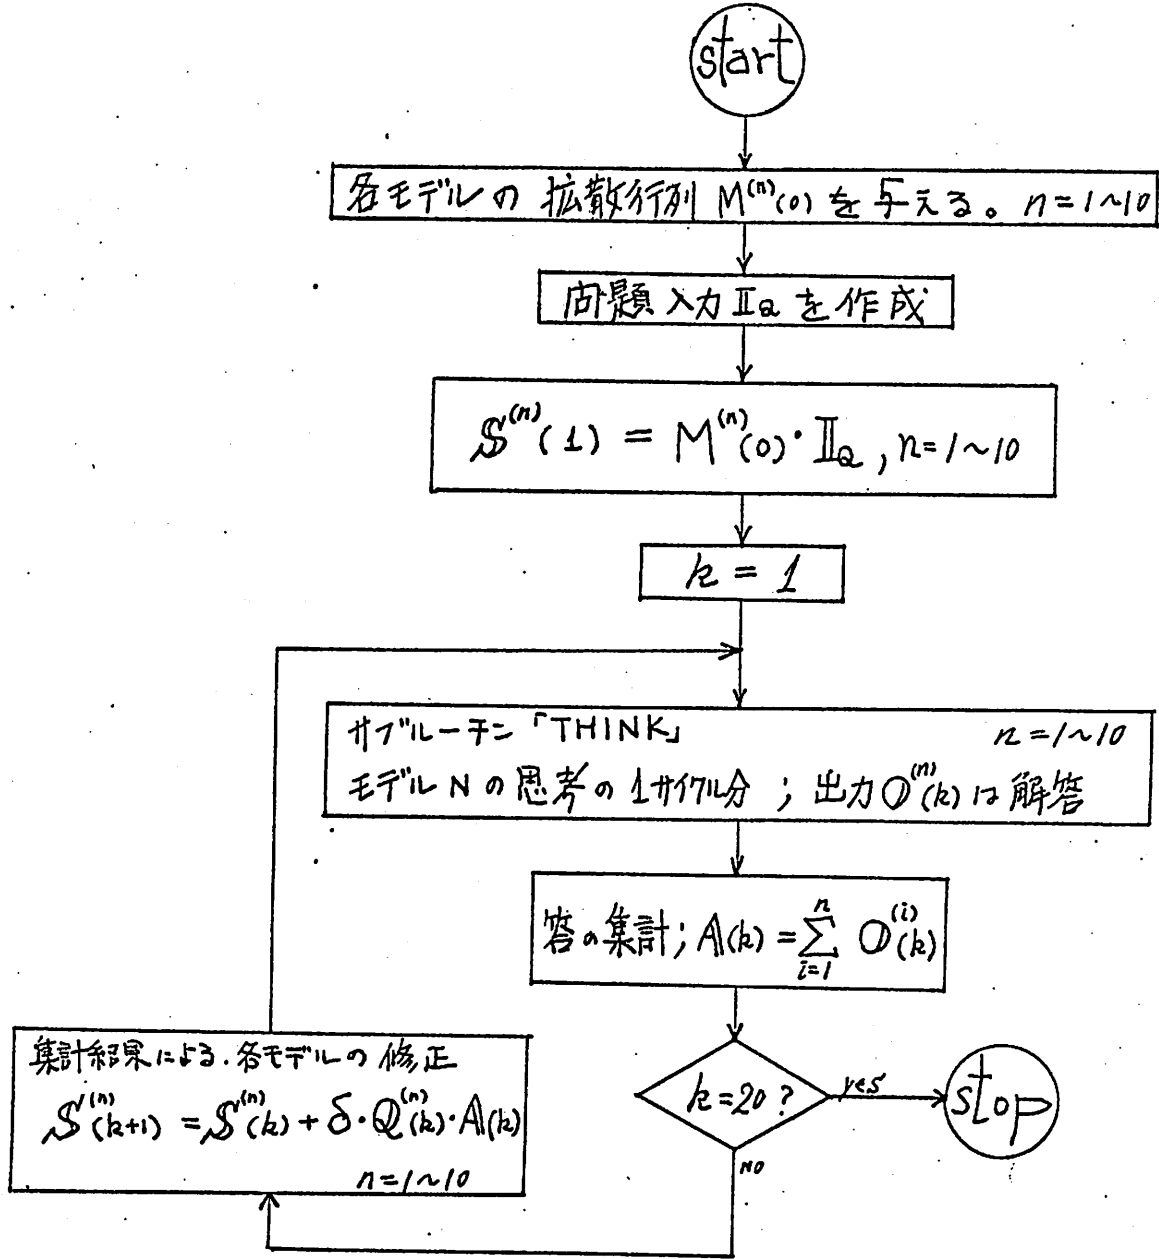 start
各モデルの 拡散行列 M⁽ⁿ⁾(0) を与える。 n=1~10
問題入力 𝕀_Q を作成
𝕊⁽ⁿ⁾(1) = M⁽ⁿ⁾(0)・𝕀_Q , n=1~10
k = 1
サブルーチン「THINK」 n=1~10
モデル N の思考の 1サイクル分 ; 出力 𝕆⁽ⁿ⁾(k) は 解答
答の集計; 𝔸(k) = Σ_{i=1}^{n} 𝕆⁽ⁱ⁾(k)
k=20?
yes
stop
NO
集計結果による.各モデルの 修正
𝕊⁽ⁿ⁾(k+1) = 𝕊⁽ⁿ⁾(k) + δ・ℚ⁽ⁿ⁾(k)・𝔸(k)
n=1~10